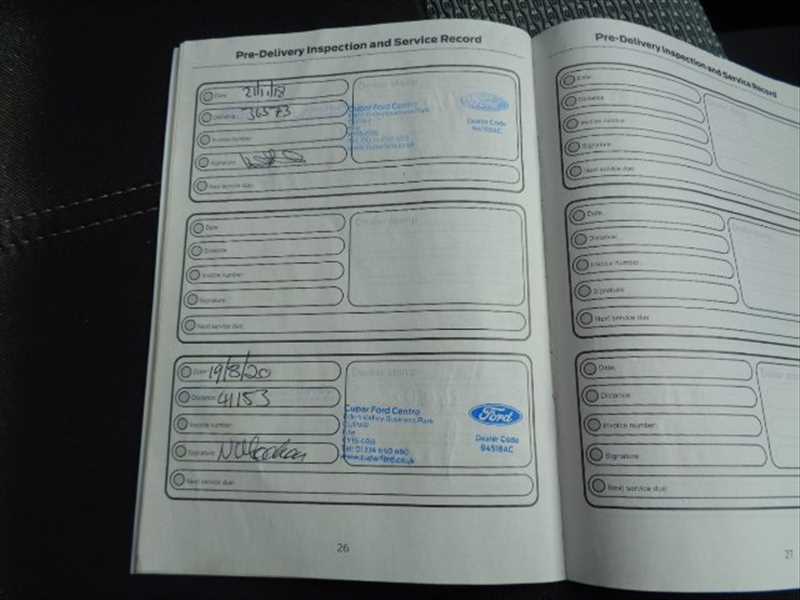 Pre-Delivery Inspection and Service Record
Date 21/1/18
Distance 36573
Invoice number
Signature
Next service due
Cupar Ford Centre
Eden Valley Business Park
CUPAR
Fife
www.cuparford.co.uk
Ford
Dealer Code
94518AC
Date
Distance
Invoice number
Signature
Next service due
Dealer stamp
Date 19/8/20
Distance 41153
Invoice number
Signature
Next service due
Dealer stamp
Cupar Ford Centre
Eden Valley Business Park
CUPAR
Fife
www.cuparford.co.uk
Ford
Dealer Code
94518AC
26
Pre-Delivery Inspection and Service Record
Date
Distance
Invoice number
Signature
Next service due
Date
Distance
Invoice number
Signature
Next service due
Date
Distance
Invoice number
Signature
Next service due
27